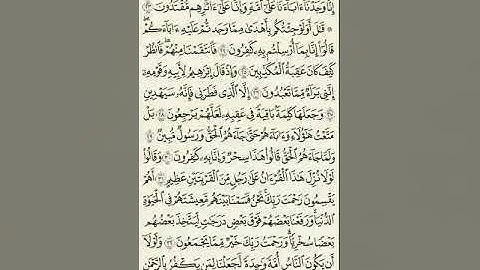 إِنَّا وَجَدْنَآ ءَابَآءَنَا عَلَىٰٓ أُمَّةٍ وَإِنَّا عَلَىٰٓ ءَاثَٰرِهِم مُّقْتَدُونَ ٢٣
۞ قَٰلَ أَوَلَوْ جِئْتُكُم بِأَهْدَىٰ مِمَّا وَجَدتُّمْ عَلَيْهِ ءَابَآءَكُمْ ۖ
قَالُوٓا۟ إِنَّا بِمَآ أُرْسِلْتُم بِهِۦ كَٰفِرُونَ ٢٤ فَٱنتَقَمْنَا مِنْهُمْ ۖ فَٱنظُرْ
كَيْفَ كَانَ عَٰقِبَةُ ٱلْمُكَذِّبِينَ ٢٥ وَإِذْ قَالَ إِبْرَٰهِيمُ لِأَبِيهِ وَقَوْمِهِۦٓ
إِنَّنِى بَرَآءٌ مِّمَّا تَعْبُدُونَ ٢٦ إِلَّا ٱلَّذِى فَطَرَنِى فَإِنَّهُۥ سَيَهْدِينِ
٢٧ وَجَعَلَهَا كَلِمَةًۢ بَاقِيَةً فِى عَقِبِهِۦ لَعَلَّهُمْ يَرْجِعُونَ ٢٨ بَلْ
مَتَّعْتُ هَٰٓؤُلَآءِ وَءَابَآءَهُمْ حَتَّىٰ جَآءَهُمُ ٱلْحَقُّ وَرَسُولٌ مُّبِينٌ ٢٩
وَلَمَّا جَآءَهُمُ ٱلْحَقُّ قَالُوا۟ هَٰذَا سِحْرٌ وَإِنَّا بِهِۦ كَٰفِرُونَ ٣٠ وَقَالُوا۟
لَوْلَا نُزِّلَ هَٰذَا ٱلْقُرْءَانُ عَلَىٰ رَجُلٍ مِّنَ ٱلْقَرْيَتَيْنِ عَظِيمٍ ٣١ أَهُمْ
يَقْسِمُونَ رَحْمَتَ رَبِّكَ ۚ نَحْنُ قَسَمْنَا بَيْنَهُم مَّعِيشَتَهُمْ فِى ٱلْحَيَوٰةِ
ٱلدُّنْيَا ۚ وَرَفَعْنَا بَعْضَهُمْ فَوْقَ بَعْضٍ دَرَجَٰتٍ لِّيَتَّخِذَ بَعْضُهُم
بَعْضًا سُخْرِيًّا ۗ وَرَحْمَتُ رَبِّكَ خَيْرٌ مِّمَّا يَجْمَعُونَ ٣٢ وَلَوْلَآ
أَن يَكُونَ ٱلنَّاسُ أُمَّةً وَٰحِدَةً لَّجَعَلْنَا لِمَن يَكْفُرُ بِٱلرَّحْمَٰنِ